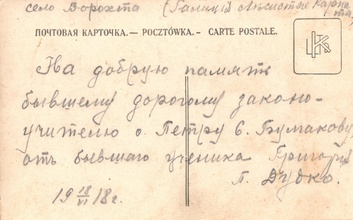 село Ворохта (Галиція Лѣсистые Карпаты)
ПОЧТОВАЯ КАРТОЧКА.— POCZTÓWKA.— CARTE POSTALE.
На добрую память
бывшему дорогому законо-
учителю о. Петру Е. Бумакову
отъ бывшаго ученика Григорія
П. Дудко.
19 18/VI 18г.